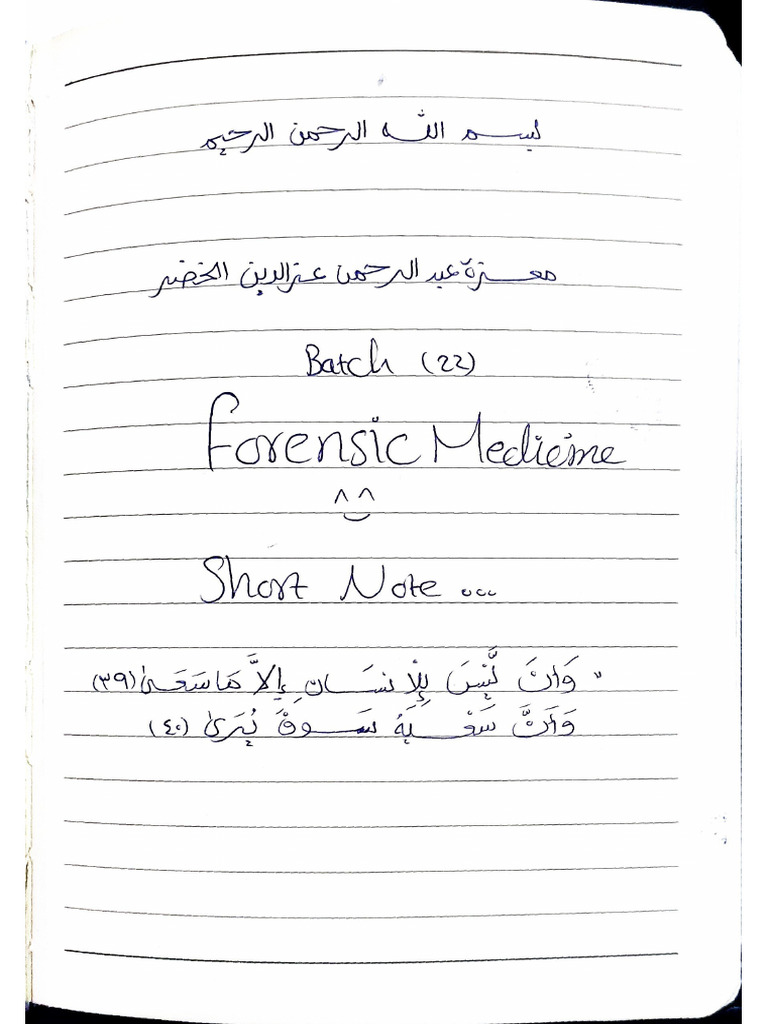 بسم الله الرحمن الرحيم
معزة عبد الرحمن عز الدين الخضر
Batch (22)
Forensic Medicine
^ ^
Short Note ...
" وَأَنَّ لَّيْسَ لِلْإِنسَانِ إِلَّا مَا سَعَىٰ (٣٩)
وَأَنَّ سَعْيَهُ سَوْفَ يُرَىٰ (٤٠)